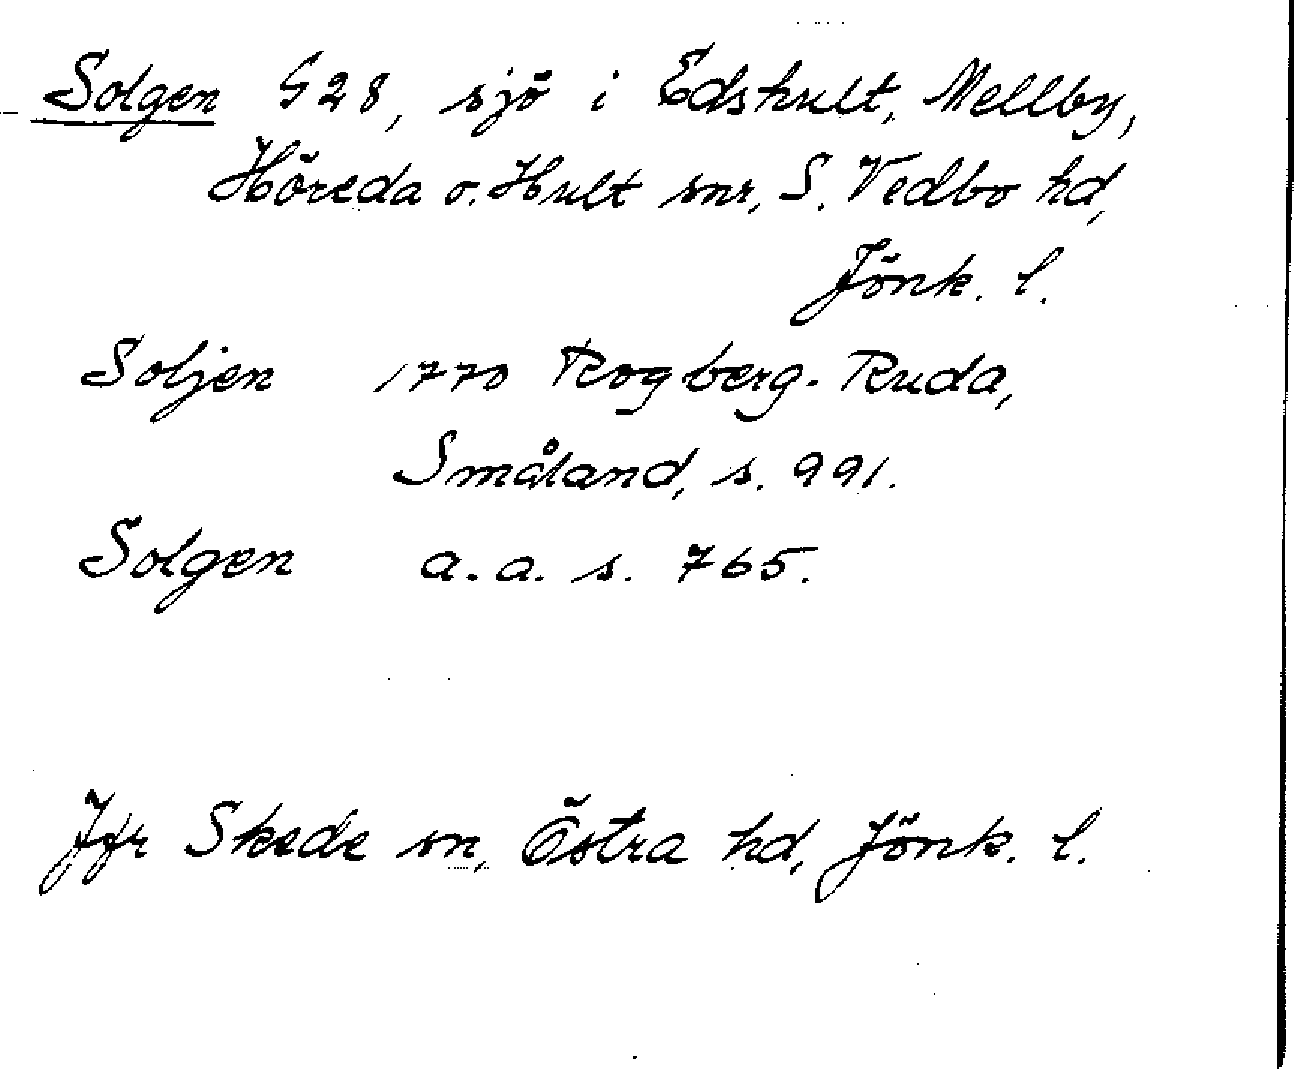 Solgen G28, sjö i Edshult, Mellby,
Höreda o. Hult snr, S. Vedbo hd,
Jönk. l.
Soljen 1770 Rogberg-Ruda,
Småland, s. 991.
Solgen a.a. s. 765.
Jfr Skede sn, Östra hd, Jönk. l.